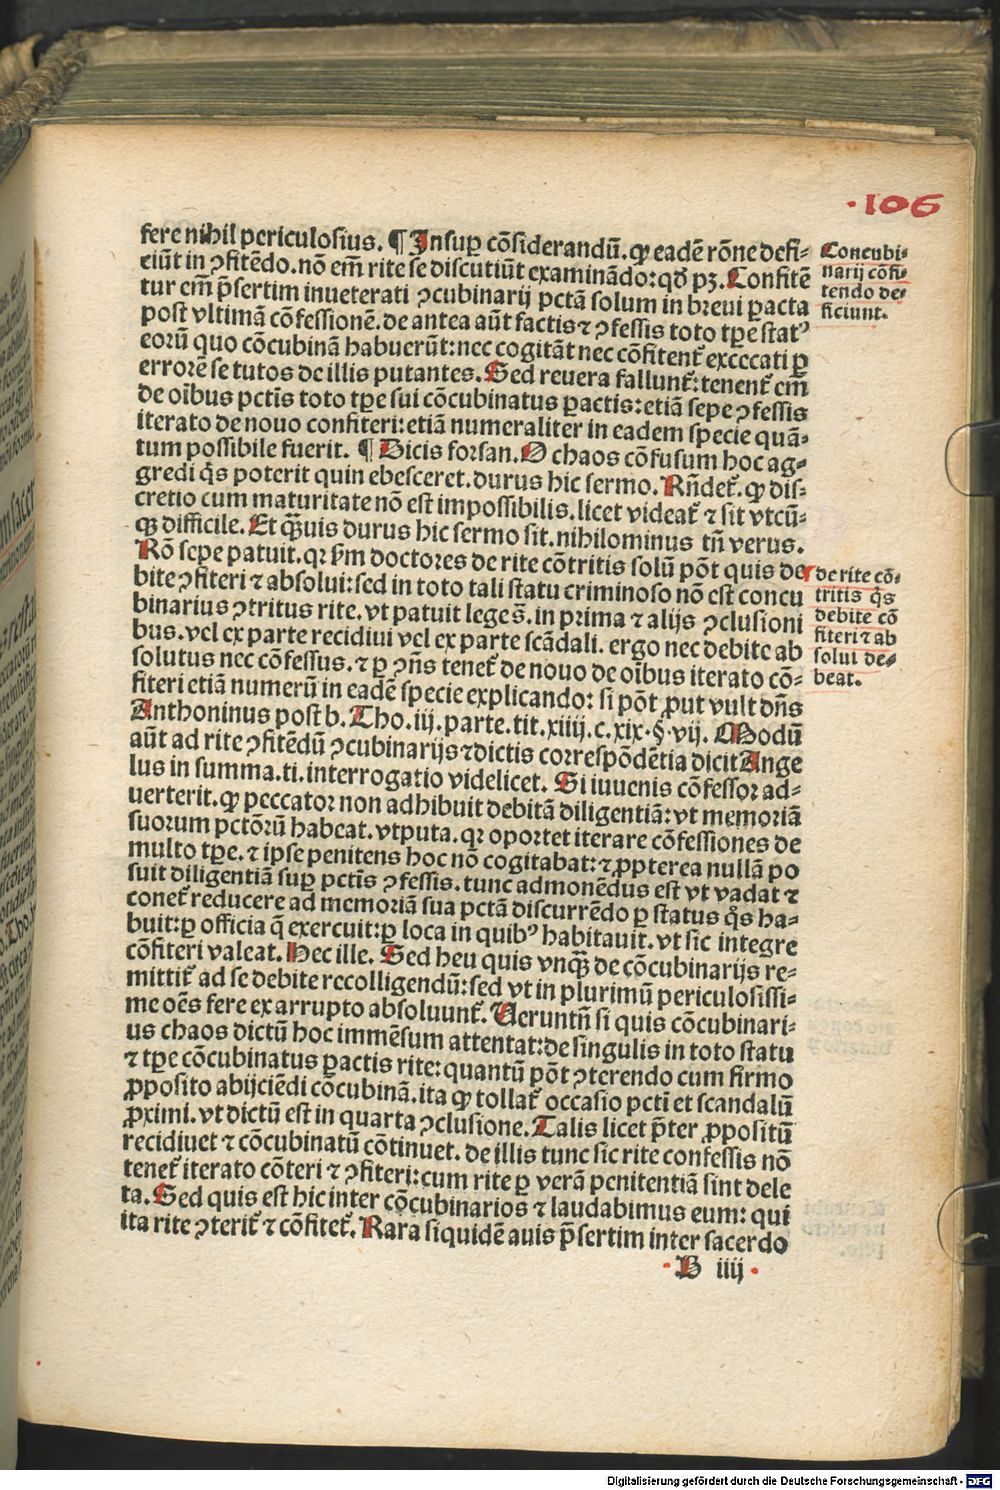 ·106
fere nihil periculosius. ¶ Insuꝑ cõsiderandũ. ꝙ eadẽ rõne defi-
ciũt in ꝯfitẽdo. nõ em̃ rite se discutiũt examinãdo: qđ pꝫ. Confitẽ
tur em̃ p̃sertim inueterati ꝯcubinarij pctã solum in breui ꝑacta
post vltimã cõfessionẽ. de antea aũt factis ⁊ ꝯfessis toto tꝑe statꝰ
eorũ quo cõcubinã habuerũt: nec cogitãt nec cõfitent᷑ excecati ꝑ
errorẽ se tutos de illis putantes. Sed reuera fallunt᷑: tenent᷑ em̃
de oĩbus pctĩs toto tꝑe sui cõcubinatus ꝑactis: etiã sepe ꝯfessis
iterato de nouo confiteri: etiã numeraliter in eadem specie quã-
tum possibile fuerit. ¶ Dicis forsan. O chaos cõfusum hoc ag-
gredi q̃s poterit quin ebesceret. durus hic sermo. Rñdet᷑. ꝙ dis-
cretio cum maturitate nõ est impossibilis. licet videat᷑ ⁊ sit vtcũ-
qꝫ difficile. Et q̃ꝫuis durus hic sermo sit. nihilominus tñ verus.
Rõ sepe patuit. qꝛ ẜm doctores de rite cõtritis solũ põt quis de
bite ꝯfiteri ⁊ absolui: sed in toto tali statu criminoso nõ est concu
binarius ꝯtritus rite. vt patuit lege s̃. in prima ⁊ alijs ꝯclusioni
bus. vel ex parte recidiui vel ex parte scãdali. ergo nec debite ab
solutus nec cõfessus. ⁊ ꝑ ꝯñs tenet᷑ de nouo de oĩbus iterato cõ-
fiteri etiã numerũ in eadẽ specie explicando: si põt ꝓut vult dñs
Anthoninus post b. Tho. iij. parte. tit. xiiij. c. xix. §. vij. Modũ
aũt ad rite ꝯfitẽdũ ꝯcubinarijs ⁊ dictis correspõdẽtia dicit Ange
lus in summa. ti. interrogatio videlicet. Si iuuenis cõfessor ad-
uerterit. ꝙ peccator non adhibuit debitã diligentiã: vt memoriã
suorum pctõrũ habeat. vtputa. qꝛ oportet iterare cõfessiones de
multo tꝑe. ⁊ ipse penitens hoc nõ cogitabat: ⁊ ꝓpterea nullã po
suit diligentiã suꝑ pctĩs ꝯfessis. tunc admonẽdus est vt vadat ⁊
conet᷑ reducere ad memoriã sua pctã discurrẽdo ꝑ status q̃s ha-
buit: ꝑ officia q̃ exercuit: ꝑ loca in quibꝰ habitauit. vt sic integre
cõfiteri valeat. Hec ille. Sed heu quis vnq̃ꝫ de cõcubinarijs re-
mittit᷑ ad se debite recolligendũ: sed vt in plurimũ periculosissi-
me oẽs fere ex arrupto absoluunt᷑. Ueruntñ si quis cõcubinari-
us chaos dictũ hoc immẽsum attentat: de singulis in toto statu
⁊ tꝑe cõcubinatus ꝑactis rite: quantũ põt ꝯterendo cum firmo
ꝓposito abijciẽdi cõcubinã. ita ꝙ tollat᷑ occasio pctĩ et scandalũ
ꝓximi. vt dictũ est in quarta ꝯclusione. Talis licet p̃ter ꝓpositũ
recidiuet ⁊ cõcubinatũ cõtinuet. de illis tunc sic rite confessis nõ
tenet᷑ iterato cõteri ⁊ ꝯfiteri: cum rite ꝑ verã penitentiã sint dele
ta. Sed quis est hic inter cõcubinarios ⁊ laudabimus eum: qui
ita rite ꝯterit᷑ ⁊ cõfitet᷑. Rara siquidẽ auis p̃sertim inter sacerdo
·B iiij·
Concubi-
narij cõfi-
tendo de-
ficiunt.
de rite cõ-
tritis q̃s
debite cõ
fiteri ⁊ ab
solui de-
beat.
Digitalisierung gefördert durch die Deutsche Forschungsgemeinschaft - DFG